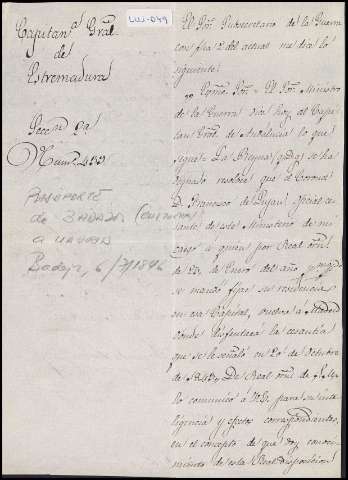 LUJ-049
Capitan.ª Gral
de
Estremadura
Secc.n 9ª
Num.
PASAPORTE
de BADAJOZ
a
Badajoz, 6/7/1846
El Sor. Subsecretario de la Guerra
con fha 2 del actual me dice lo
siguiente.
Ecmo. Sor. = El Sor. Ministro
de la Guerra dice hoy al Capi-
tan Gral. de Andalucia lo que
sigue = La Reyna (q.D.g.) se ha
dignado resolver que el Coronel
D. Francisco de Lujan, oficial ce-
sante de este Ministerio de mi
cargo à quien por Real orn.
de 23 de Enero del año
se mandó fijase su residencia
en esa Capital, vuelva à Madrid
donde disfrutará la cesantia
que se le señaló en 20 de Octubre
de 1843. De Real orn. de S.M.
lo comunico à V.E. para su inte-
ligencia y efectos correspondientes,
en el concepto de que doy conoci-
miento de esta Real disposicion